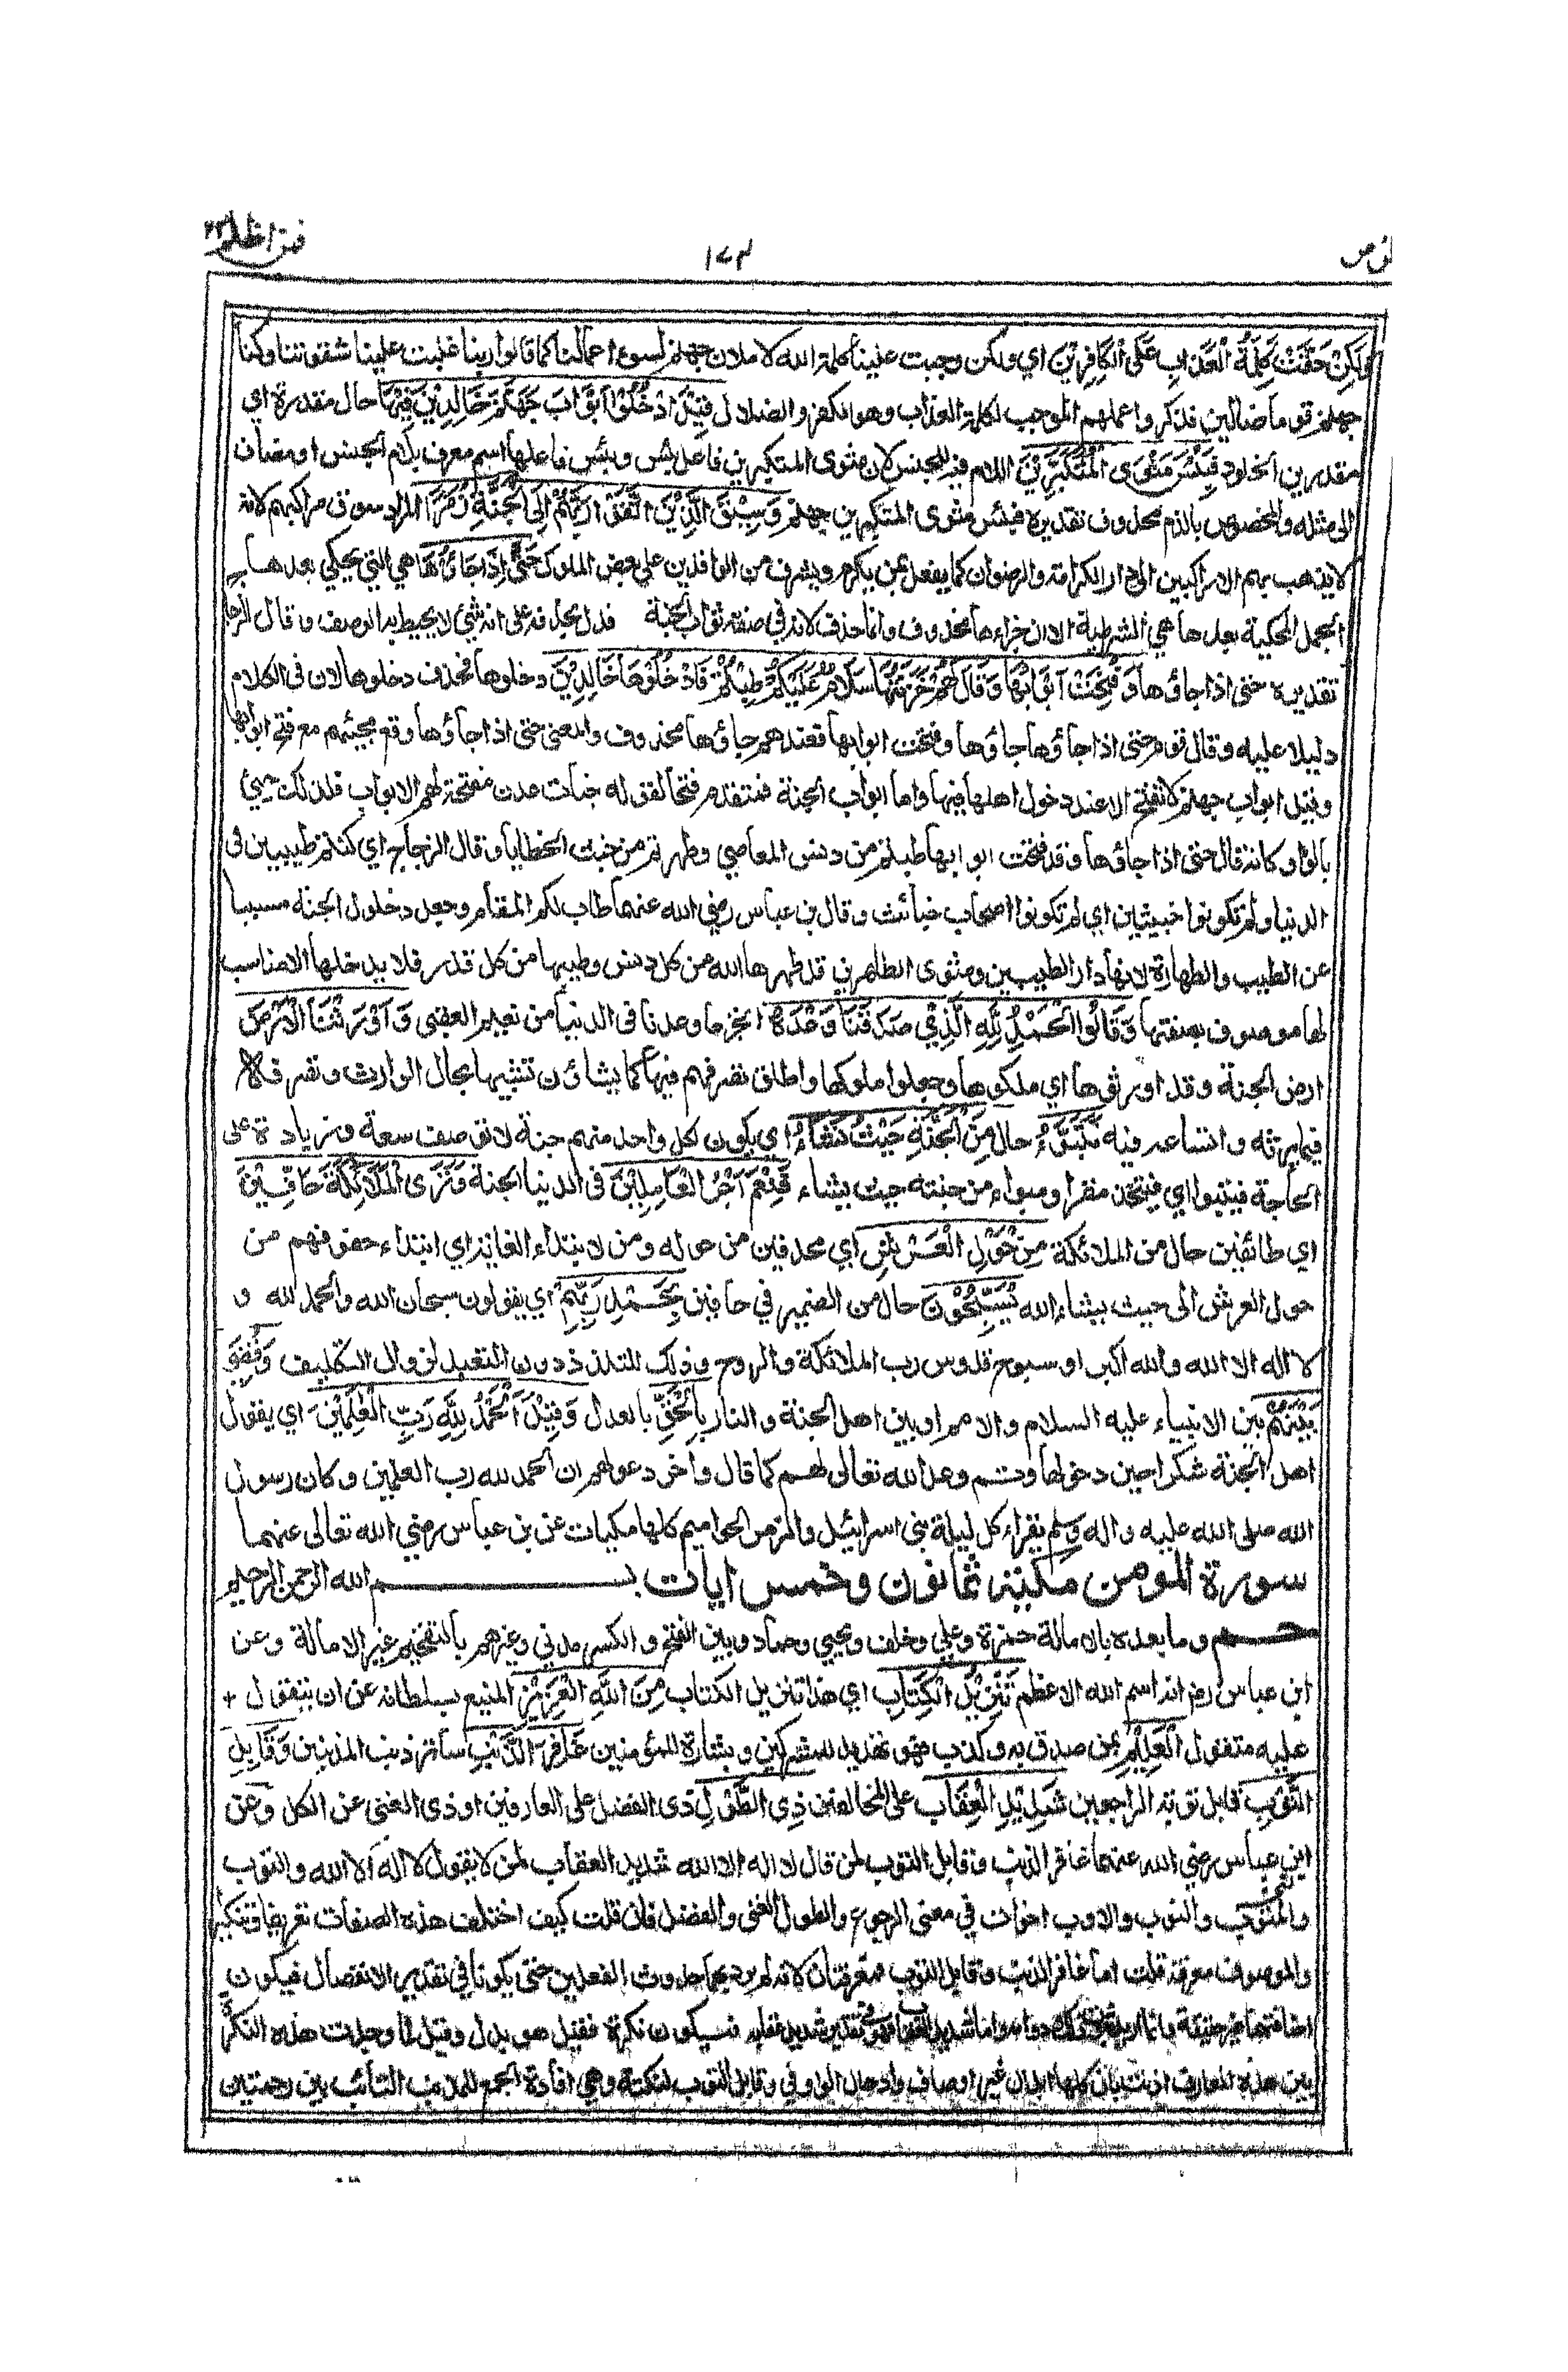 فمن اظلم ٢٤
١٧٣
وَلٰكِنْ حَقَّتْ كَلِمَةُ الْعَذَابِ عَلَى الْكَافِرِيْنَ اي ولكن وجبت علينا كلمة الله لاملان جهنم لسوء اعمالنا كما قالوا ربنا غلبت علينا شقوتنا وكنا
قوما ضالين فذكر واعملهم الموجب لكلمة العذاب وهو الكفر والضلال قِيْلَ ادْخُلُوْا اَبْوَابَ جَهَنَّمَ خَالِدِيْنَ فِيْهَا حال مقدرة اي
مقدرين الخلود فَبِئْسَ مَثْوَى الْمُتَكَبِّرِيْنَ اللام فيه للجنس لان مثوى المتكبرين فاعل بئس وبئس فاعلها اسم معرف بلام الجنس او مضاف
الى مثله والمخصوص بالذم محذوف تقديره فبئس مثوى المتكبرين جهنم وَسِيْقَ الَّذِيْنَ اتَّقَوْا رَبَّهُمْ اِلَى الْجَنَّةِ زُمَرًا المراد سوق مراكبهم لانه
لا يذهب بهم الا راكبين الى دار الكرامة والرضوان كما يفعل بمن يكرم ويشرف من الوافدين على بعض الملوك حَتّٰى اِذَا جَاؤُهَا هي التي يحكي بعدها
الجمل المحكية بعدها هي الشرطية الا ان جزاءها محذوف وانما حذف لانه في صفة ثواب الجنة فدل بحذفه على انه شئ لا يحيط به الوصف وقال الزجاج
تقديره حتى اذا جاؤها وَفُتِحَتْ اَبْوَابُهَا وَقَالَ لَهُمْ خَزَنَتُهَا سَلَامٌ عَلَيْكُمْ طِبْتُمْ فَادْخُلُوْهَا خَالِدِيْنَ دخلوها فحذف دخلوها لان في الكلام
دليلا عليه وقال قوم حتى اذا جاؤها جاؤها وفتحت ابوابها فعندهم جاؤها محذوف والمعنى حتى اذا جاؤها وقع مجيئهم مع فتح ابوابها
وقيل ابواب جهنم لا تفتح الا عند دخول اهلها فيها واما ابواب الجنة فتتقدم فتحها لقوله جنات عدن مفتحة لهم الابواب فلذلك جيئ
بالواو كانه قال حتى اذا جاؤها وقد فتحت ابوابها طبتم من دنس المعاصي وطهرتم من خبث الخطايا وقال الزجاج اي كنتم طيبين في
الدنيا ولم تكونوا خبيثين اي لم تكونوا اصحاب خبائث وقال بن عباس رضي الله عنهما طاب لكم المقام وجعل دخول الجنة مسببا
عن الطيب والطهارة لانها دار الطيبين ومثوى الطاهرين قد طهرها الله من كل دنس وطيبها من كل قذر فلا يدخلها الا مناسب
لها موصوف بصفتها وَقَالُوا الْحَمْدُ لِلّٰهِ الَّذِيْ صَدَقَنَا وَعْدَهُ انجزما وعدنا في الدنيا من نعيم العقبى وَاَوْرَثَنَا الْاَرْضَ
ارض الجنة وقد اورثوها اي ملكوها وجعلوا ملوكها واطلق تصرفهم فيها كما يشاؤن تشبيها بحال الوارث وتصرفه
فيما يرثه واتساعه فيه نَتَبَوَّءُ حال مِنَ الْجَنَّةِ حَيْثُ نَشَاءُ اي يكون لكل واحد منهم جنة لا توصف سعة وزيادة على
الحاجة فيتبوا اي فيتخذ مقرا ومبواء من جنته حيث يشاء فَنِعْمَ اَجْرُ الْعَامِلِيْنَ في الدنيا الجنة وَتَرَى الْمَلَائِكَةَ حَافِّيْنَ
اي طائفين حال من الملائكة مِنْ حَوْلِ الْعَرْشِ اي محدقين من حوله ومن لابتداء الغاية اي ابتداء حفوفهم من
حول العرش الى حيث يشاء الله يُسَبِّحُوْنَ حال من الضمير في حافين بِحَمْدِ رَبِّهِمْ اي يقولون سبحان الله والحمد لله و
لا اله الا الله والله اكبر او سبوح قدوس رب الملائكة والروح وذلك للتلذذ دون التعبد لزوال التكليف وَقُضِيَ
بَيْنَهُمْ بين الانبياء عليه السلام والامم او بين اهل الجنة والنار بِالْحَقِّ بالعدل وَقِيْلَ الْحَمْدُ لِلّٰهِ رَبِّ الْعٰلَمِيْنَ اي يقول
اهل الجنة شكرا حين دخولها وتم وعد الله تعالى لهم كما قال واخر دعوٰهم ان الحمد لله رب العلمين وكان رسول
الله صلى الله عليه واله وسلم يقراء كل ليلة بني اسرائيل والزمر الحواميم كلها مكيات عن بن عباس رضي الله تعالى عنهما
سورة المومن مكية ثمانون وخمس ايات بسم الله الرحمن الرحيم
حم وما بعده بالامالة حمزة وعلي وخلف ويحيى وحماد وبين الفتح والكسر مدني وغيرهم بالتفخيم غير الامالة وعن
ابن عباس رض انه اسم الله الاعظم تَنْزِيْلُ الْكِتَابِ اي هذا تنزيل الكتاب مِنَ اللّٰهِ الْعَزِيْزِ المنيع بسلطانه عن ان يتقول +
عليه متقول الْعَلِيْمِ بمن صدق به وكذب فهو تهديد للمشركين وبشارة للمؤمنين غَافِرِ الذَّنْبِ ساتر ذنب المذنبين وَقَابِلِ
التَّوْبِ قابل توبة الراجعين شَدِيْدِ الْعِقَابِ على المخالفين ذِى الطَّوْلِ ذي الفضل على العارفين او ذي الغنى عن الكل وعن
ابن عباس رضي الله عنهما غافر الذنب وقابل التوب لمن قال لا اله الا الله شديد العقاب لمن لا يقول لا اله الا الله والتوب
والثوب والنوب والاوب اخوات في معنى الرجوع والطول الغنى والفضل فان قلت كيف اختلف هذه الصفات تعريفا وتنكيرا
والموصوف معرفة قلت اما غافر الذنب وقابل التوب فمعرفتان لانه لم يرد بهما حدوث الفعلين حتى يكونا في تقدير الانفصال فيكون
اضافتهما غير حقيقة وانما اريد ثبوت ذلك ودوامه واما شديد العقاب فهو في تقدير شديد عقابه فيكون نكرة فقيل هو بدل وقيل لما وجدت هذه النكرة
بين هذه المعارف اذنت بان كلها ابدال غير اوصاف وادخال الواو في وقابل التوب لنكتة وهي افادة الجمع للمذنب التائب بين رحمتين